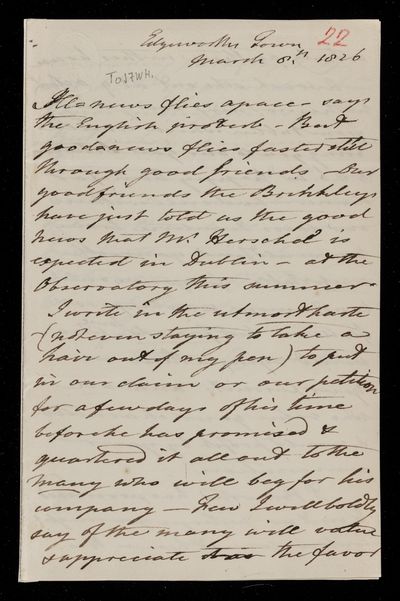 Edgeworths Town 22
March 8.th 1826
To JFWH.
Ill news flies apace - says
the English proverb - But
good news flies faster still
through good friends - Our
good friends the Brinkleys
have just told us the good
news that Mr. Herschel is
expected in Dublin - at the
Observatory this summer -
I write in the utmost haste
(not even staying to take a
hair out of my pen) to put
in our claim or our petition
for a few days of his time
before he has promised &
quartered it all out to the
many who will beg for his
company - Few I will boldly
say of the many will value
& appreciate the favor